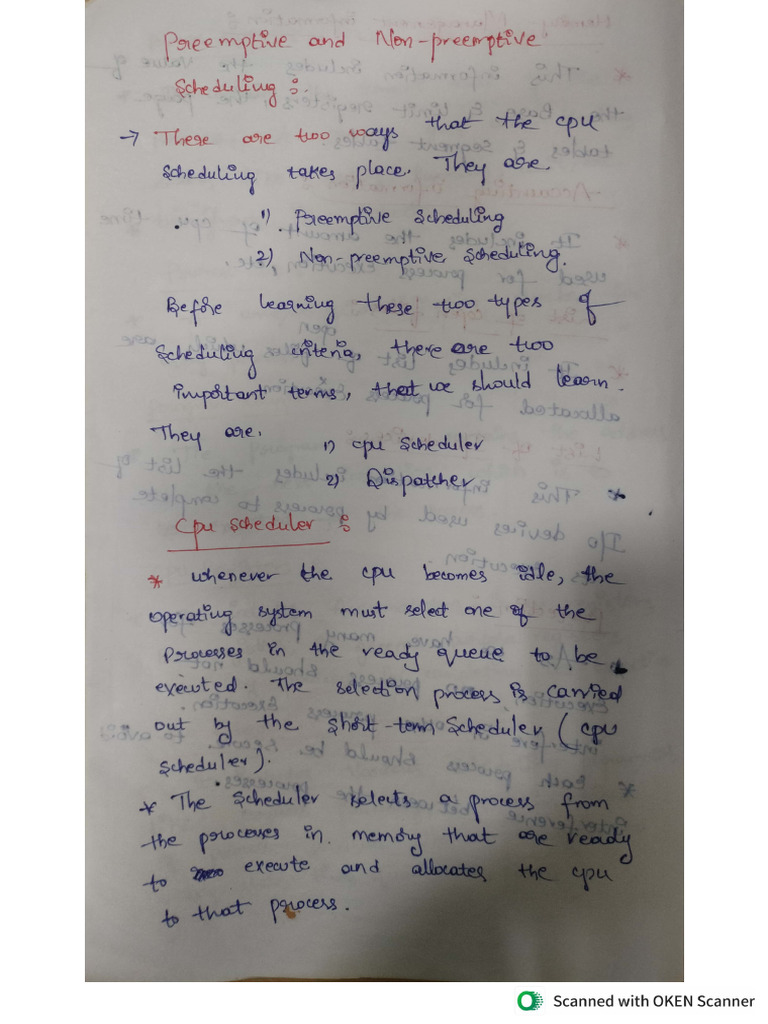 Preemptive and Non-preemptive
Scheduling :
→ There are two ways that the cpu
scheduling takes place. They are
1) Preemptive scheduling
2) Non-preemptive scheduling.
Before learning these two types of
scheduling criteria, there are two
important terms, that we should learn.
They are.
1) cpu scheduler
2) Dispatcher
Cpu scheduler :
* whenever the cpu becomes idle, the
operating system must select one of the
processes in the ready queue to be
executed. The selection process is carried
out by the short-term scheduler (cpu
scheduler).
* The scheduler selects a process from
the processes in memory that are ready
to execute and allocates the cpu
to that process.
Scanned with OKEN Scanner